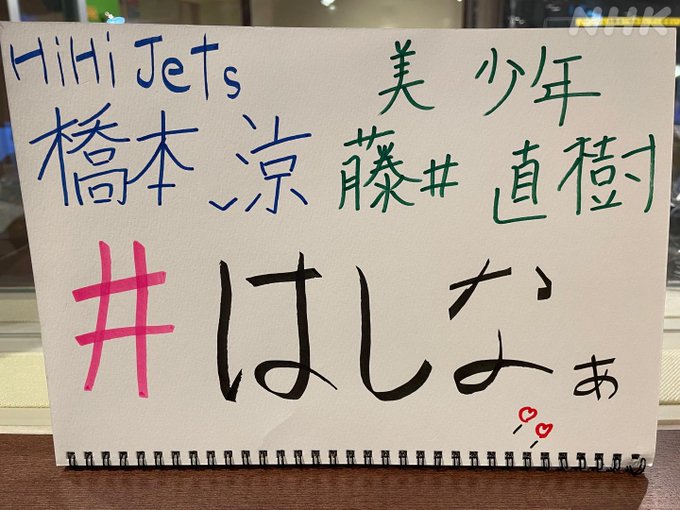 NHK
HiHi Jets 美 少年
橋本 涼 藤井 直樹
#はしなぁ